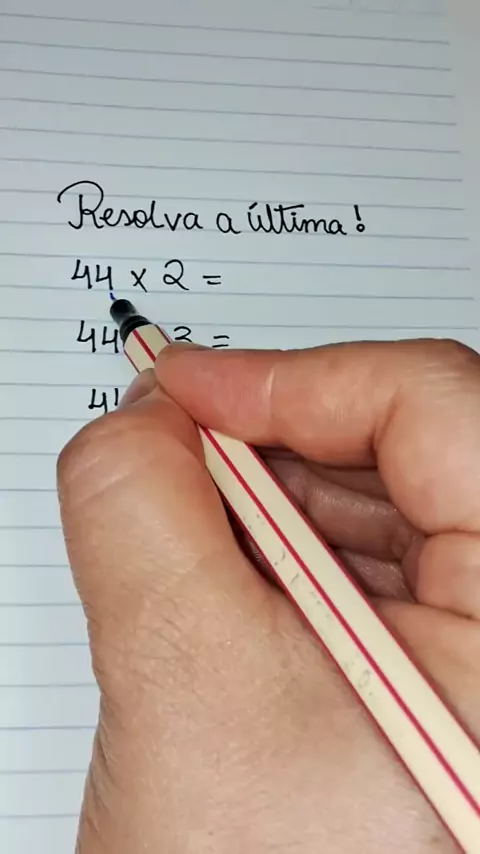 Resolva a última!
44 x 2 =
44 3 =
4